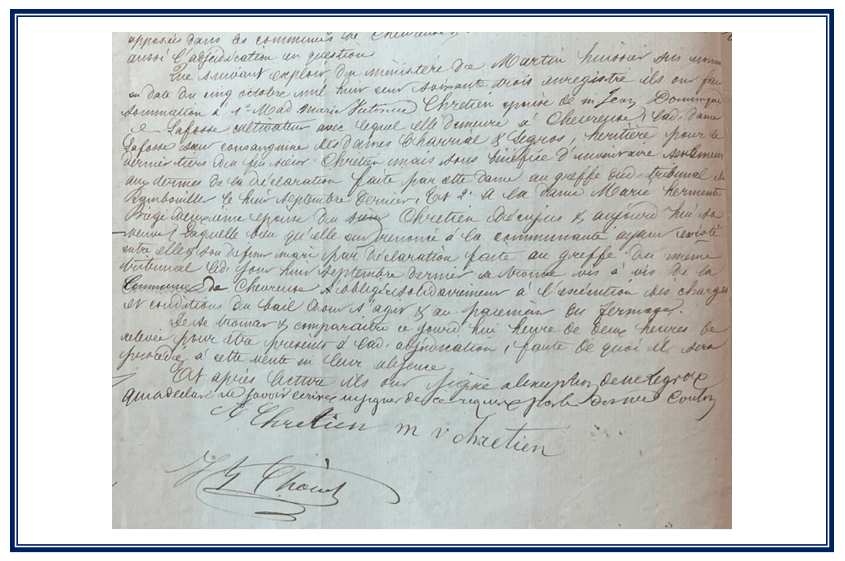 apposées dans les communes de Chevreuse
aussi l'adjudication en question
Que suivant exploit du ministère de Martin huissier sus nommé
en date du cinq octobre mil huit cent soixante trois enregistré ils ont fait
sommation à 1° Mad Marie Victorine Chretien épouse de m. Jean Dominique
Lafosse cultivateur avec lequel elle demeure à Chevreuse, Lad. dame
Lafosse sœur consanguine des dames Charrial & Legros, héritière pour le
dernier tiers du feu sieur Chretien mais sous bénéfice d'inventaire seulement
aux termes de la déclaration faite par cette dame au greffe du tribunal de
Rambouillet le huit septembre dernier; Et 2° à la dame Marie
Piégé deuxième épouse du sieur Chretien & aujourd'hui sa
veuve; Laquelle bien qu'elle eut renoncé à la communauté ayant existé
entre elle & son défunt mari par déclaration faite au greffe du même
tribunal led. jour huit septembre dernier se trouve vis à vis de la
Commune de Chevreuse obligée solidairement à l'exécution des charges
et conditions du bail dont s'agit & au paiement du fermage.
De se trouver & comparaître ce jourd'hui heure de deux heures de
relevée pour être présents à lad. adjudication, faute de quoi il sera
procédé à cette vente en leur absence
Et après lecture ils ont signé à l'exception de me Legros
qui a déclaré ne savoir écrire ni signer de ce requise par le
Chretien m v chretien